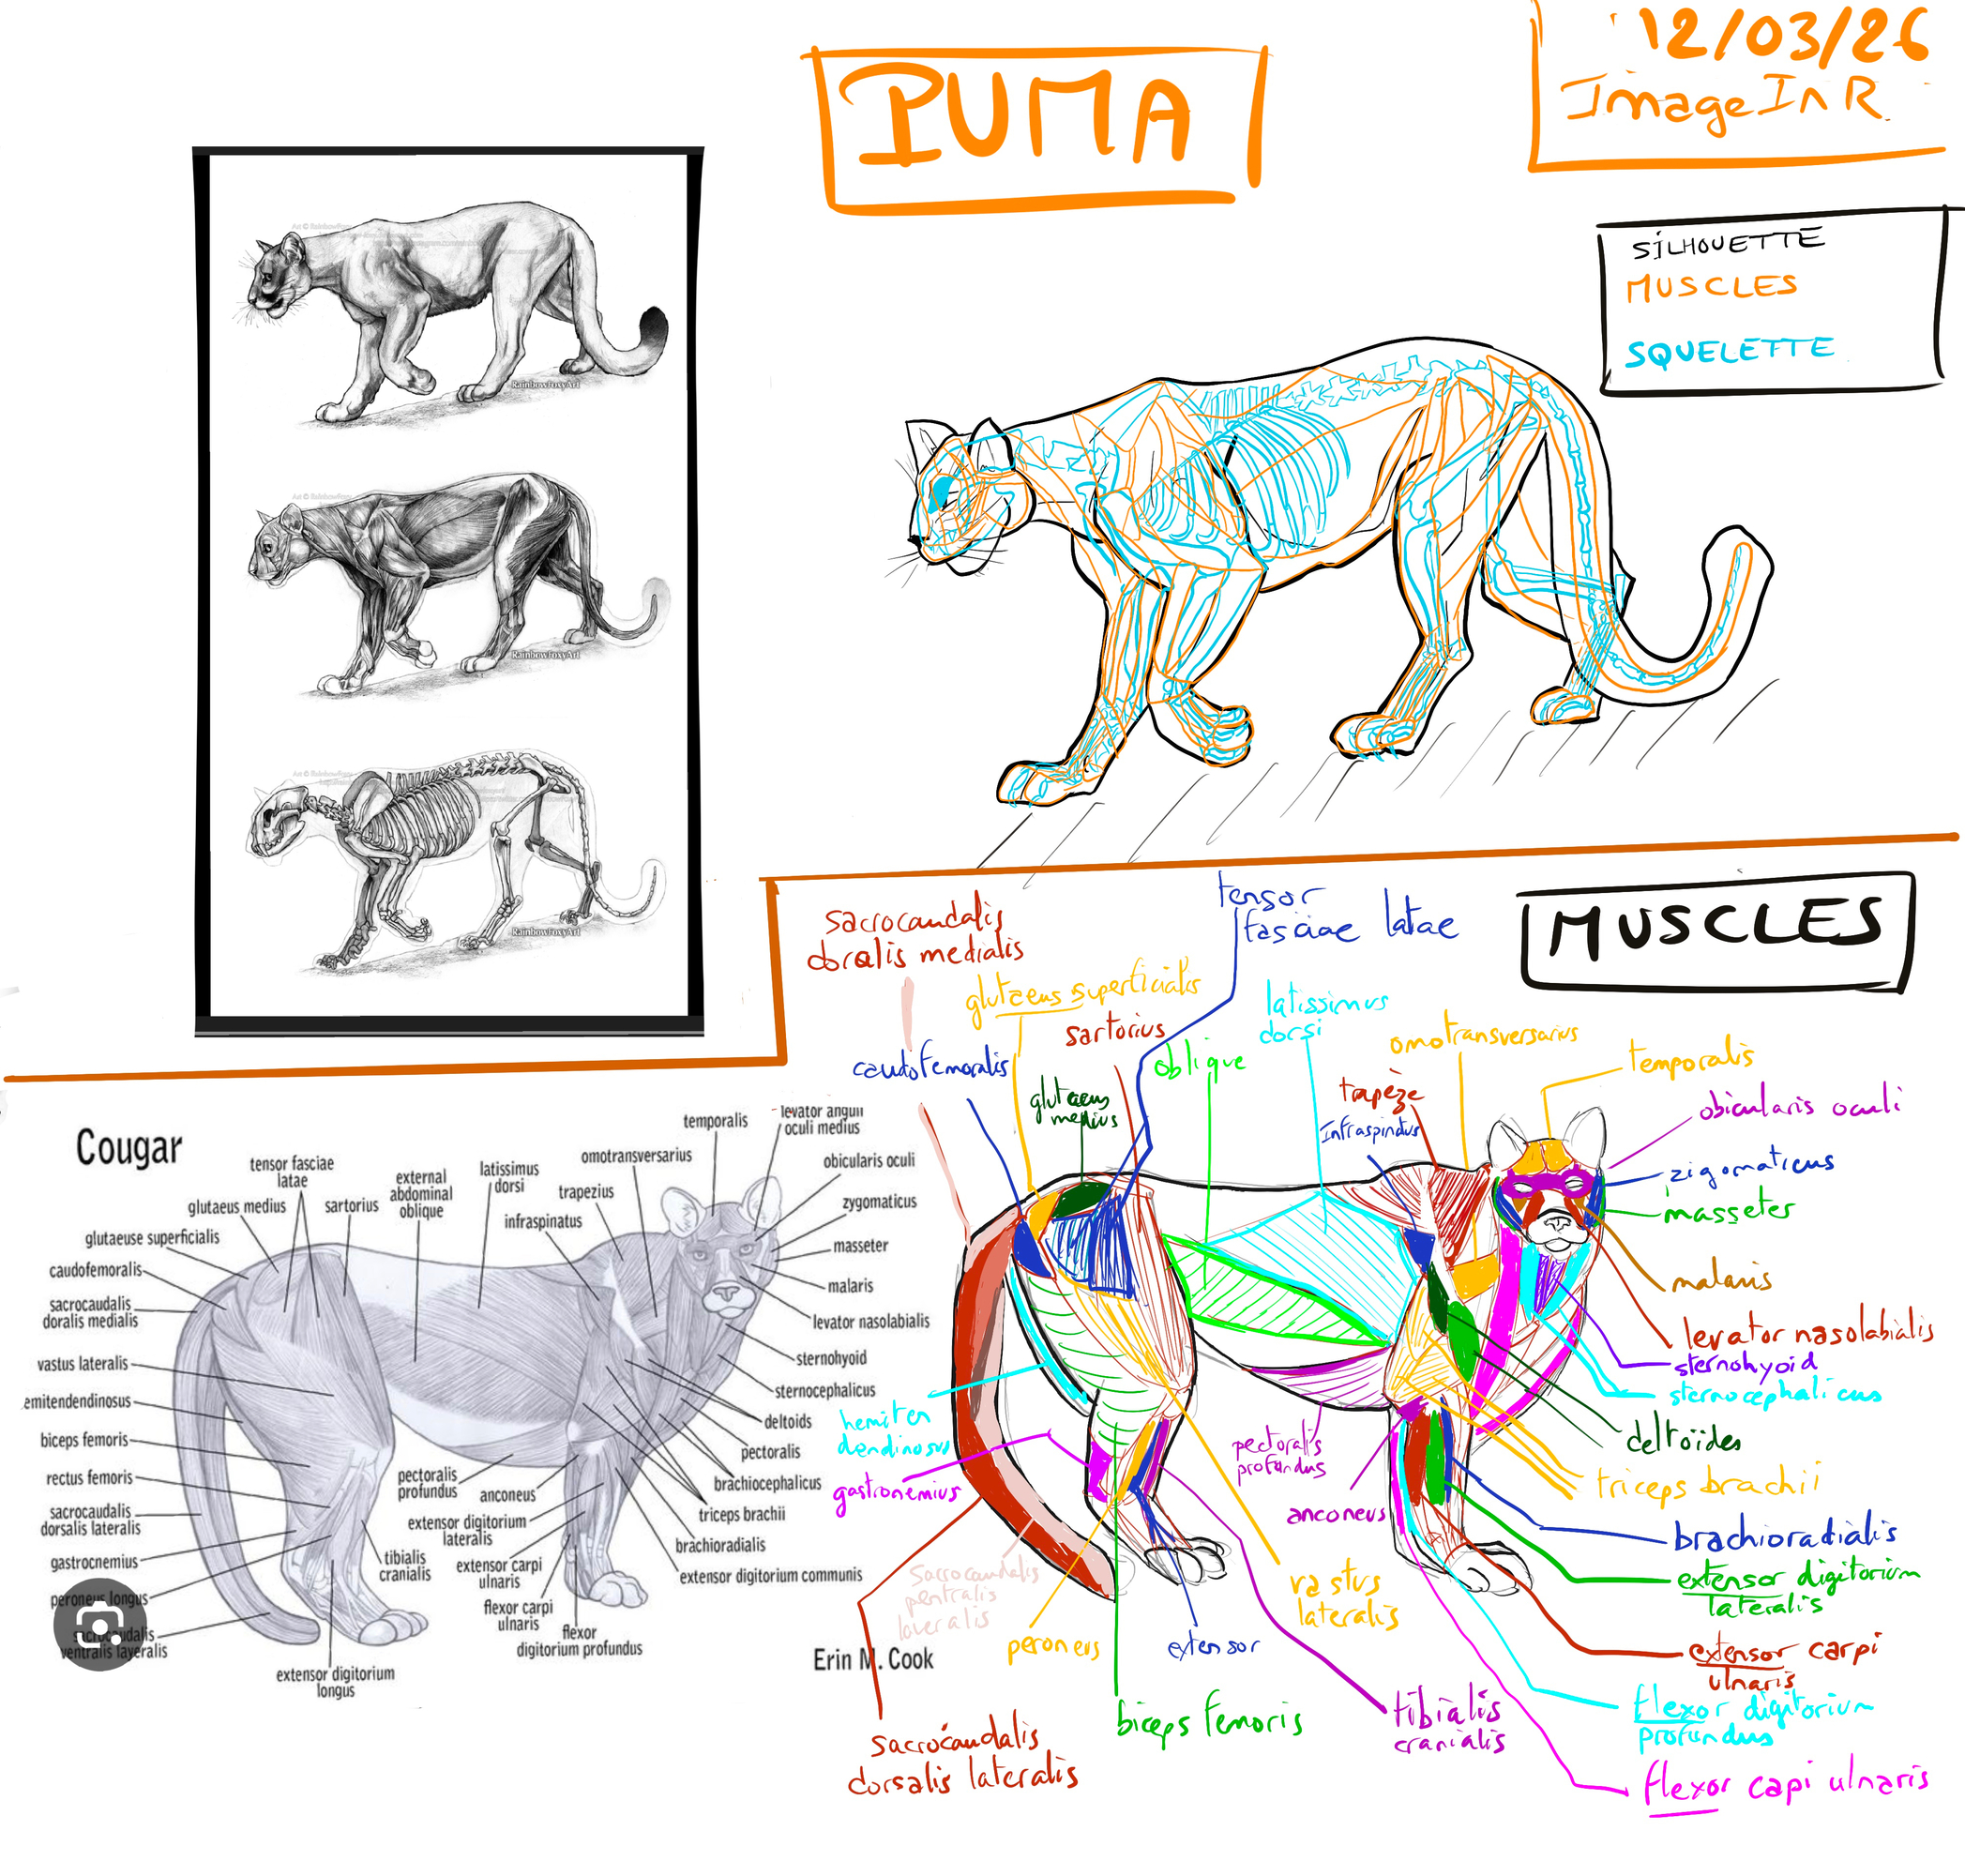 PUMA
12/03/26
ImageInR
SILHOUETTE
MUSCLES
SQUELETTE
RainbowFoxyArt
RainbowFoxyArt
RainbowFoxyArt
MUSCLES
sacrocaudalis
doralis medialis
tensor
fasciae latae
glutaeus superficialis
sartorius
latissimus
dorsi
omotransversarius
temporalis
caudofemoralis
oblique
glutaeus
medius
trapèze
Infraspindus
obicularis oculi
zigomaticus
masseter
malaris
levator nasolabialis
sternohyoid
sternocephalicus
deltoïdes
triceps brachii
brachioradialis
extensor digitorium
lateralis
extensor carpi
ulnaris
flexor digitorium
profundus
flexor capi ulnaris
hemiten
dendinosus
gastronemius
pectoralis
profundus
anconeus
Sacrocaudalis
ventralis
laveralis
peroneus
extensor
vastus
lateralis
biceps femoris
tibialis
cranialis
sacrocaudalis
dorsalis lateralis
Cougar
temporalis
levator anguli
oculi medius
omotransversarius
obicularis oculi
tensor fasciae
latae
external
abdominal
oblique
latissimus
dorsi
trapezius
zygomaticus
glutaeus medius
sartorius
infraspinatus
masseter
glutaeuse superficialis
malaris
caudofemoralis
levator nasolabialis
sacrocaudalis
doralis medialis
sternohyoid
vastus lateralis
sternocephalicus
emitendendinosus
deltoids
biceps femoris
pectoralis
rectus femoris
pectoralis
profundus
anconeus
brachiocephalicus
triceps brachii
sacrocaudalis
dorsalis lateralis
extensor digitorium
lateralis
brachioradialis
gastrocnemius
tibialis
cranialis
extensor carpi
ulnaris
extensor digitorium communis
peroneus longus
flexor carpi
ulnaris
flexor
digitorium profundus
sacrocaudalis
ventralis laveralis
extensor digitorium
longus
Erin M. Cook